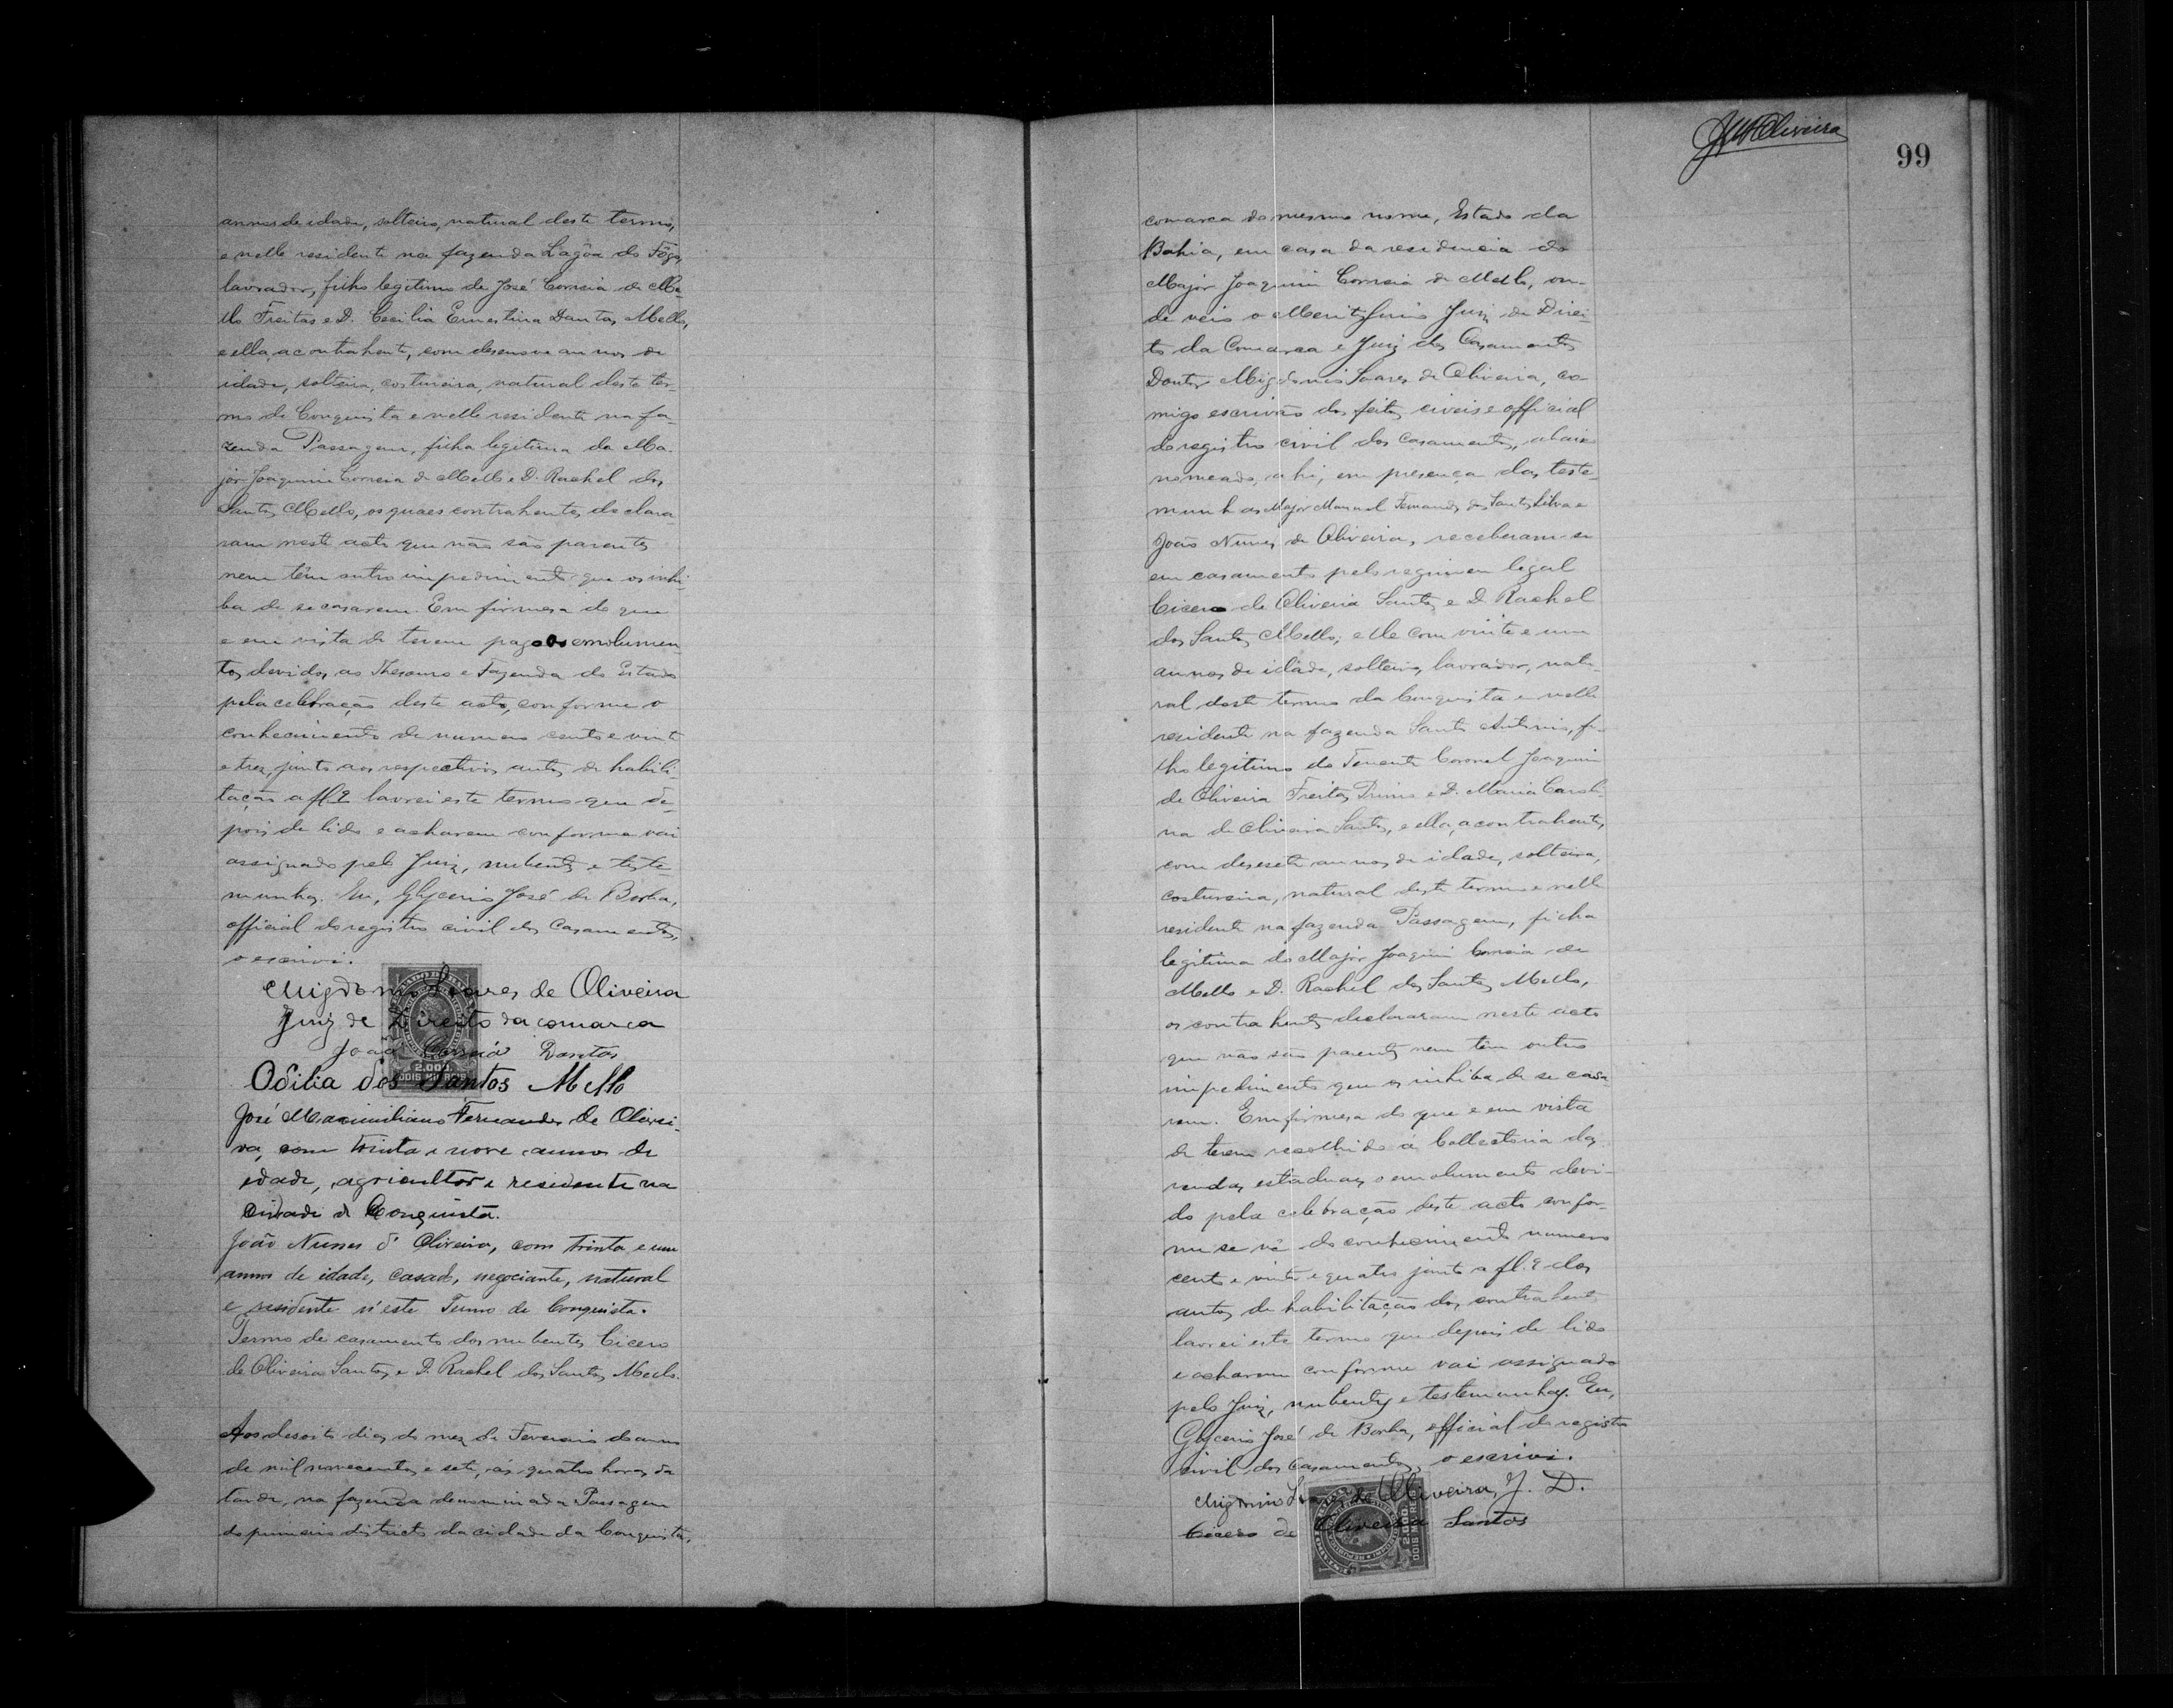 annos de idade, solteiro, natural deste termo,
e nelle residente na fazenda Lagôa do Fôgo,
lavrador, filho legitimo de José Correia de Me-
llo Freitas e D. Cecilia Ernestina Dantas Mello,
e ella, a contrahente, com desenove annos de
idade, solteira, costureira, natural deste ter-
mo de Conquista e nelle residente na fa-
zenda Passagem, filha legitima do Ma-
jor Joaquim Correia de Mello e D. Rachel dos
Santos Mello, os quaes contrahentes declara-
ram neste acto que não são parentes
nem têm outro impedimento que os inhi-
ba de se casarem. Em firmesa do que
e em vista de terem pago os emolumen-
tos devidos ao Thesouro e Fazenda do Estado
pela celebração deste acto, conforme o
conhecimento de numero cento e vinte
e tres, junto aos respectivos autos de habili-
tação a fl. 2 lavrei este termo que de-
pois de lido e acharem conforme vai
assignado pelo Juiz, nubentes e teste-
munhas. Eu, Glycerio José de Borba,
official do registro civil dos Casamentos,
o escrivi.
Migdonio Soares de Oliveira
Juiz de Direito da comarca
João Correia Dantas
2.000
DOIS MIL REIS
Odilia dos Santos Mello
José Maximiliano Fernandes de Olivei-
ra, com trinta e nove annos de
idade, agricultor e residente na
Cidade de Conquista.
João Nunes d' Oliveira, com trinta e um
annos de idade, casado, negociante, natural
e residente n'este Termo de Conquista.
Termo de casamento dos nubentes Cicero
de Oliveira Santos e D. Rachel dos Santos Mello.
Aos desoito dias do mez de Fevereiro do anno
de mil novecentos e sete, ás quatro horas da
tarde, na fazenda denominada Passagem
do primeiro districto da cidade da Conquista,
99
comarca do mesmo nome, Estado da
Bahia, em casa da residencia do
Major Joaquim Correia de Mello, on-
de veio o Meritissimo Juiz de Direi-
to da Comarca e Juiz dos Casamentos
Doutor Migdonio Soares de Oliveira, co-
migo escrivão dos feitos civeis e official
do registro civil dos casamentos, abaixo
nomeado, ahi, em presença das teste-
munhas Major Manoel Fernandes dos Santos Silva e
João Nunes de Oliveira, receberam-se
em casamento pelo regimen legal
Cicero de Oliveira Santos e D. Rachel
dos Santos Mello; elle com vinte e um
annos de idade, solteiro, lavrador, natu-
ral deste termo da Conquista e nelle
residente na fazenda Santo Antonio, fi-
lho legitimo do Tenente Coronel Joaquim
de Oliveira Freitas Primo e D. Maria Caroli-
na de Oliveira Santos, e ella, a contrahente,
com desesete annos de idade, solteira,
costureira, natural deste termo e nelle
residente na fazenda Passagem, filha
legitima do Major Joaquim Correia de
Mello e D. Rachel dos Santos Mello,
os contrahentes declararam neste acto
que não são parentes nem têm outro
impedimento que os inhiba de se casa-
rem. Em firmesa do que e em vista
de terem recolhido á Collectoria das
rendas estaduaes o emolumento devi-
do pela celebração deste acto confor-
me se vê do conhecimento numero
cento e vinte e quatro junto a fl. 2 dos
autos de habilitação dos contrahentes
lavrei este termo que depois de lido
e acharem conforme vai assignado
pelo Juiz, nubentes e testemunhas. Eu,
Glycerio José de Borba, official do registro
civil dos Casamentos, o escrivi.
Migdonio Soares de Oliveira, J. D.
Cicero de Oliveira Santos
2.000
DOIS MIL REIS